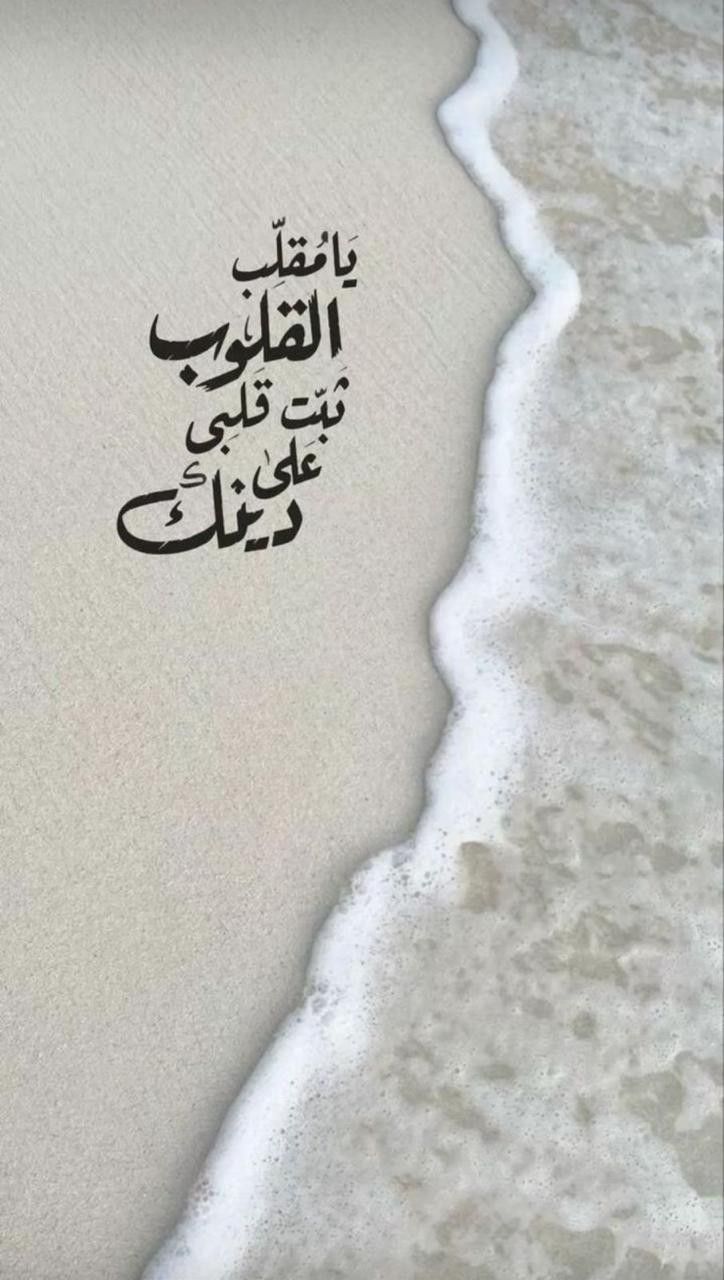 يَا مُقلِّب
القلُوب
ثَبّت قَلبِى
عَلىٰ
دينك